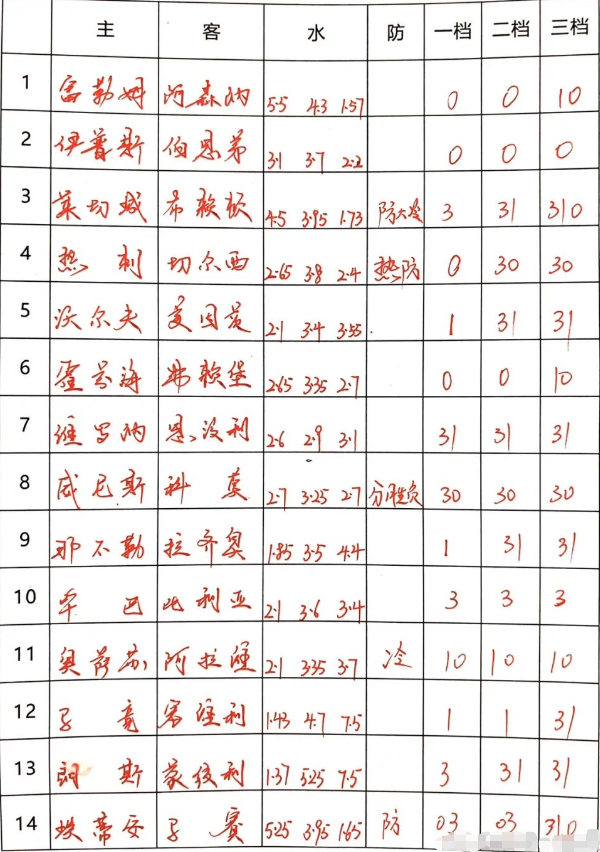 主 客 水 防 一档 二档 三档
1 富勒姆 阿森纳 5.5 4.3 1.57 0 0 10
2 伊普斯 伯恩茅 3.1 3.7 2.2 0 0 0
3 莱切城 布赖顿 4.5 3.95 1.73 防大冷 3 31 310
4 热刺 切尔西 2.65 3.8 2.4 热防 0 30 30
5 沃尔夫 美因茨 2.1 3.4 3.55 1 31 31
6 霍芬海 弗赖堡 2.65 3.35 2.7 0 0 10
7 维罗纳 恩波利 2.6 2.9 3.1 31 31 31
8 威尼斯 科莫 2.7 3.25 2.7 分胜负 30 30 30
9 那不勒 拉齐奥 1.85 3.5 4.4 1 31 31
10 毕巴 比利亚 2.1 3.6 3.4 3 3 3
11 奥萨苏 阿拉维 2.1 3.35 3.7 冷 10 10 10
12 马竞 塞维利 1.43 4.7 7.5 1 1 31
13 朗斯 蒙彼利 1.37 5.25 7.5 3 31 31
14 埃蒂安 马赛 5.25 3.95 1.65 防 03 03 310